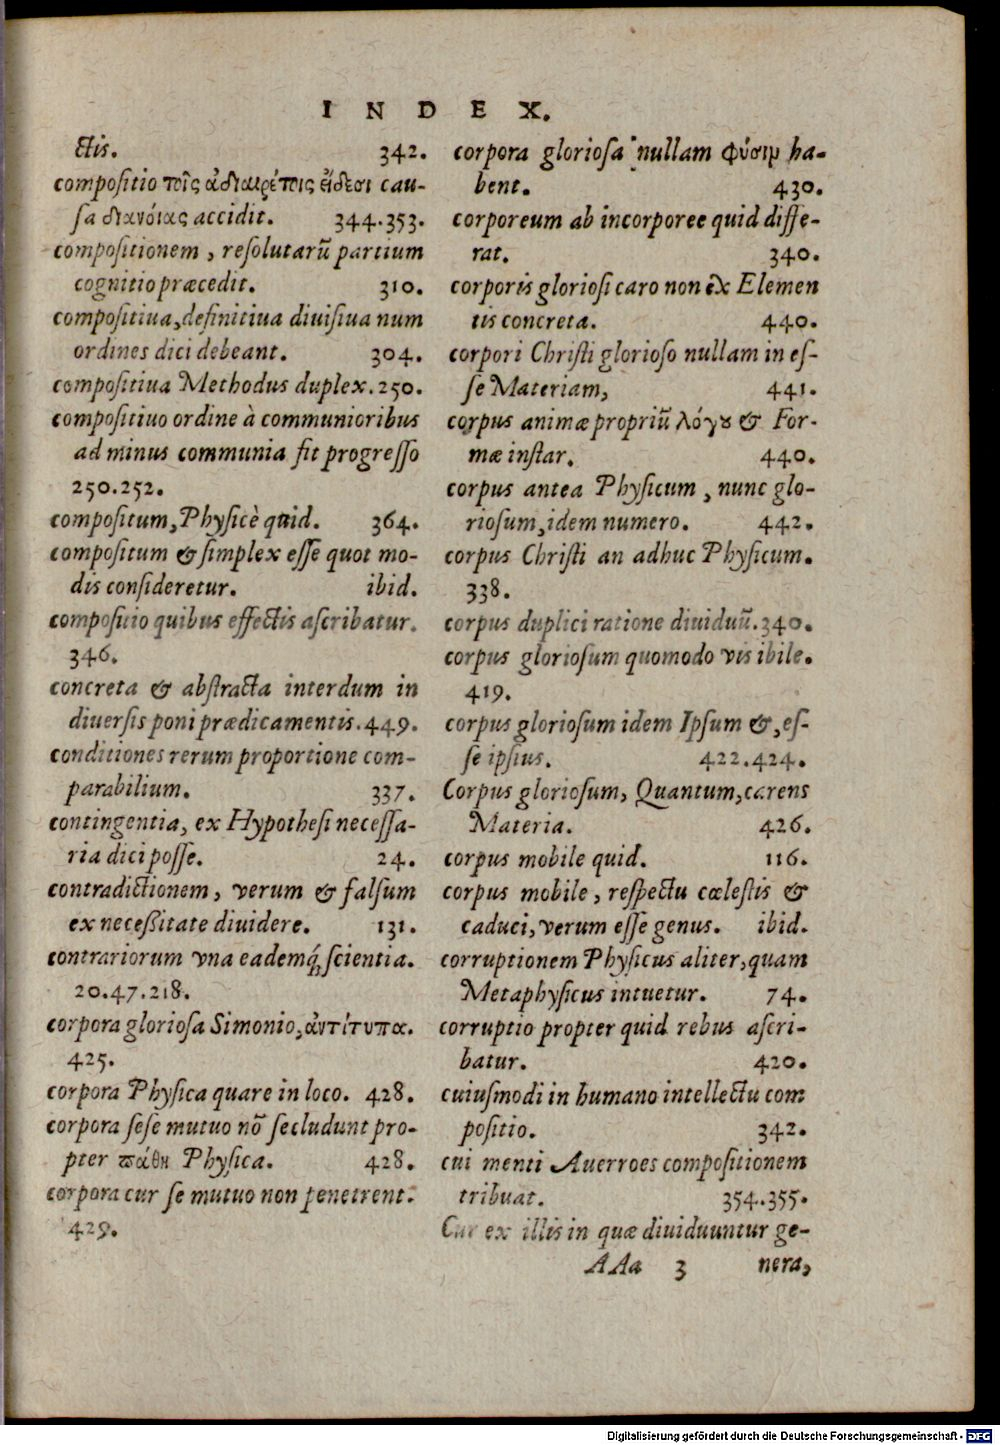 INDEX.
ctis. 342.
compositio τοῖς ἀδιαιρέτοις εἴδεσι cau-
sa διανοίας accidit. 344.353.
compositionem, resolutarū partium
cognitio præcedit. 310.
compositiua, definitiua diuisiua num
ordines dici debeant. 304.
compositiua Methodus duplex. 250.
compositiuo ordine à communioribus
ad minus communia fit progresso
250.252.
compositum, Physicè quid. 364.
compositum & simplex esse quot mo-
dis consideretur. ibid.
compositio quibus effectis ascribatur.
346.
concreta & abstracta interdum in
diuersis poni prædicamentis. 449.
conditiones rerum proportione com-
parabilium. 337.
contingentia, ex Hypothesi necessa-
ria dici posse. 24.
contradictionem, verum & falsum
ex necessitate diuidere. 131.
contrariorum vna eademq́; scientia.
20.47.218.
corpora gloriosa Simonio, ἀντίτυπα.
425.
corpora Physica quare in loco. 428.
corpora sese mutuo nō secludunt pro-
pter πάθη Physica. 428.
corpora cur se mutuo non penetrent.
429.
corpora gloriosa nullam φύσιμ ha-
bent. 430.
corporeum ab incorporee quid diffe-
rat. 340.
corporis gloriosi caro non ex Elemen
tis concreta. 440.
corpori Christi glorioso nullam in es-
se Materiam, 441.
corpus animæ propriū λόγȣ & For-
mæ instar. 440.
corpus antea Physicum, nunc glo-
riosum, idem numero. 442.
corpus Christi an adhuc Physicum.
338.
corpus duplici ratione diuiduū. 340.
corpus gloriosum quomodo visibile.
419.
corpus gloriosum idem Ipsum &, es-
se ipsius. 422.424.
Corpus gloriosum, Quantum, carens
Materia. 426.
corpus mobile quid. 116.
corpus mobile, respectu cœlestis &
caduci, verum esse genus. ibid.
corruptionem Physicus aliter, quam
Metaphysicus intuetur. 74.
corruptio propter quid rebus ascri-
batur. 420.
cuiusmodi in humano intellectu com
positio. 342.
cui menti Auerroes compositionem
tribuat. 354.355.
Cur ex illis in quæ diuiduuntur ge-
AAa 3 nera,
Digitalisierung gefördert durch die Deutsche Forschungsgemeinschaft - DFG